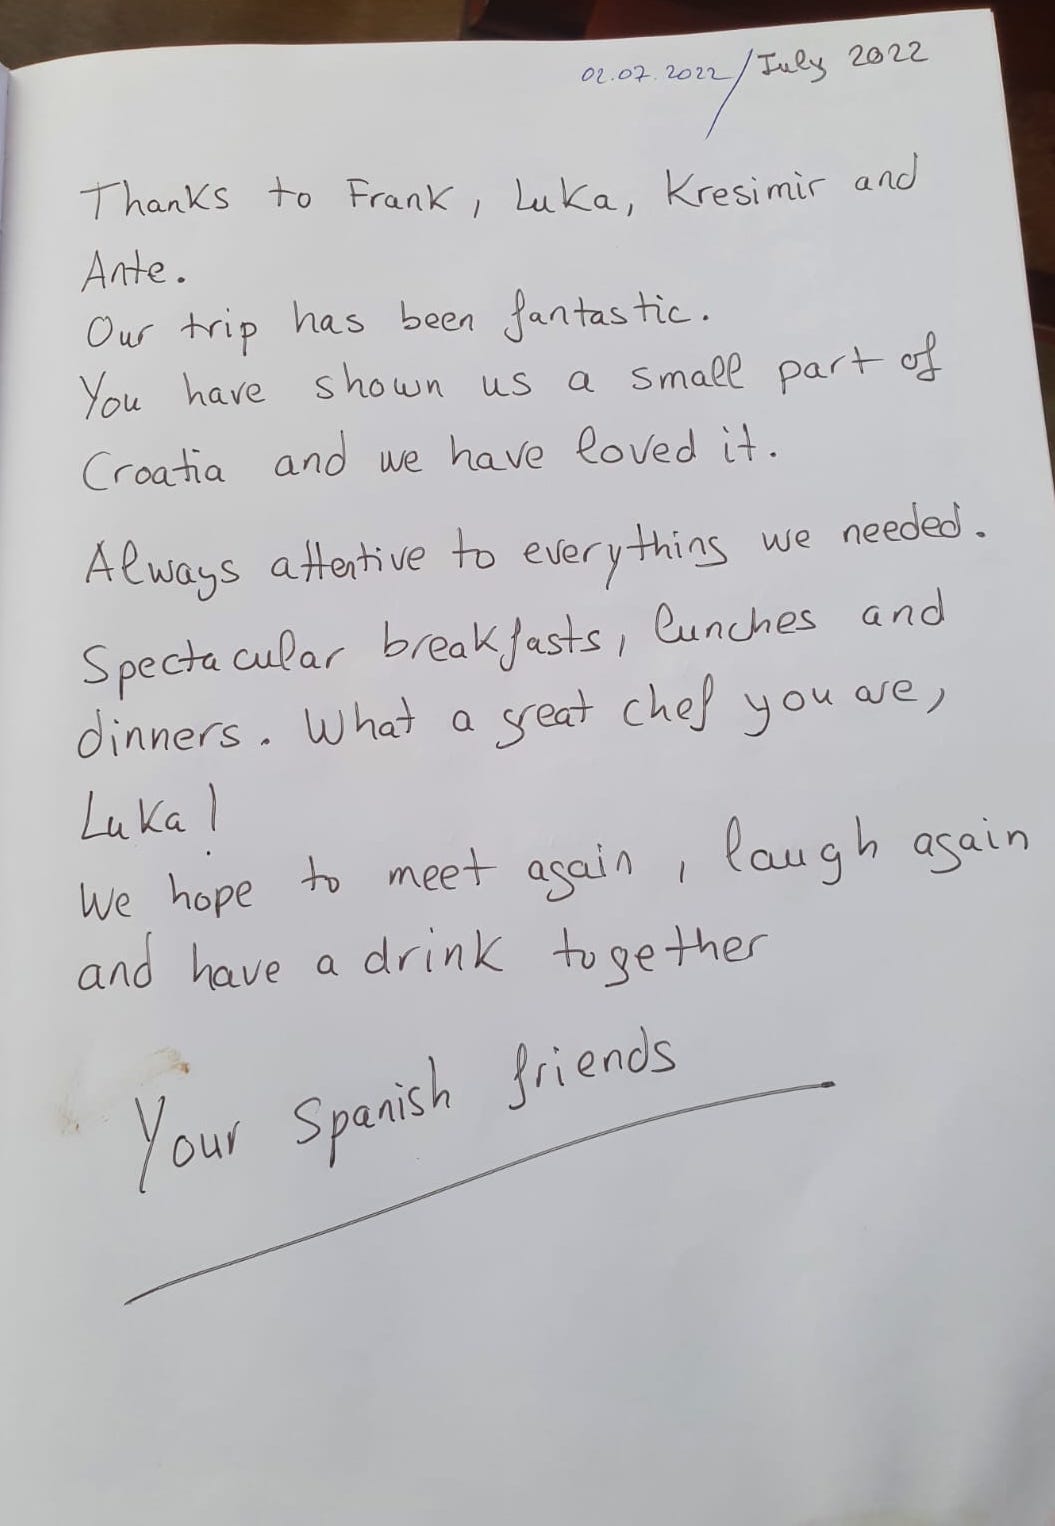 02.07.2022/July 2022
Thanks to Frank, Luka, Kresimir and
Ante.
Our trip has been fantastic.
You have shown us a small part of
Croatia and we have loved it.
Always attentive to everything we needed.
Spectacular breakfasts, lunches and
dinners. What a great chef you are,
Luka!
We hope to meet again, laugh again
and have a drink together
Your Spanish friends